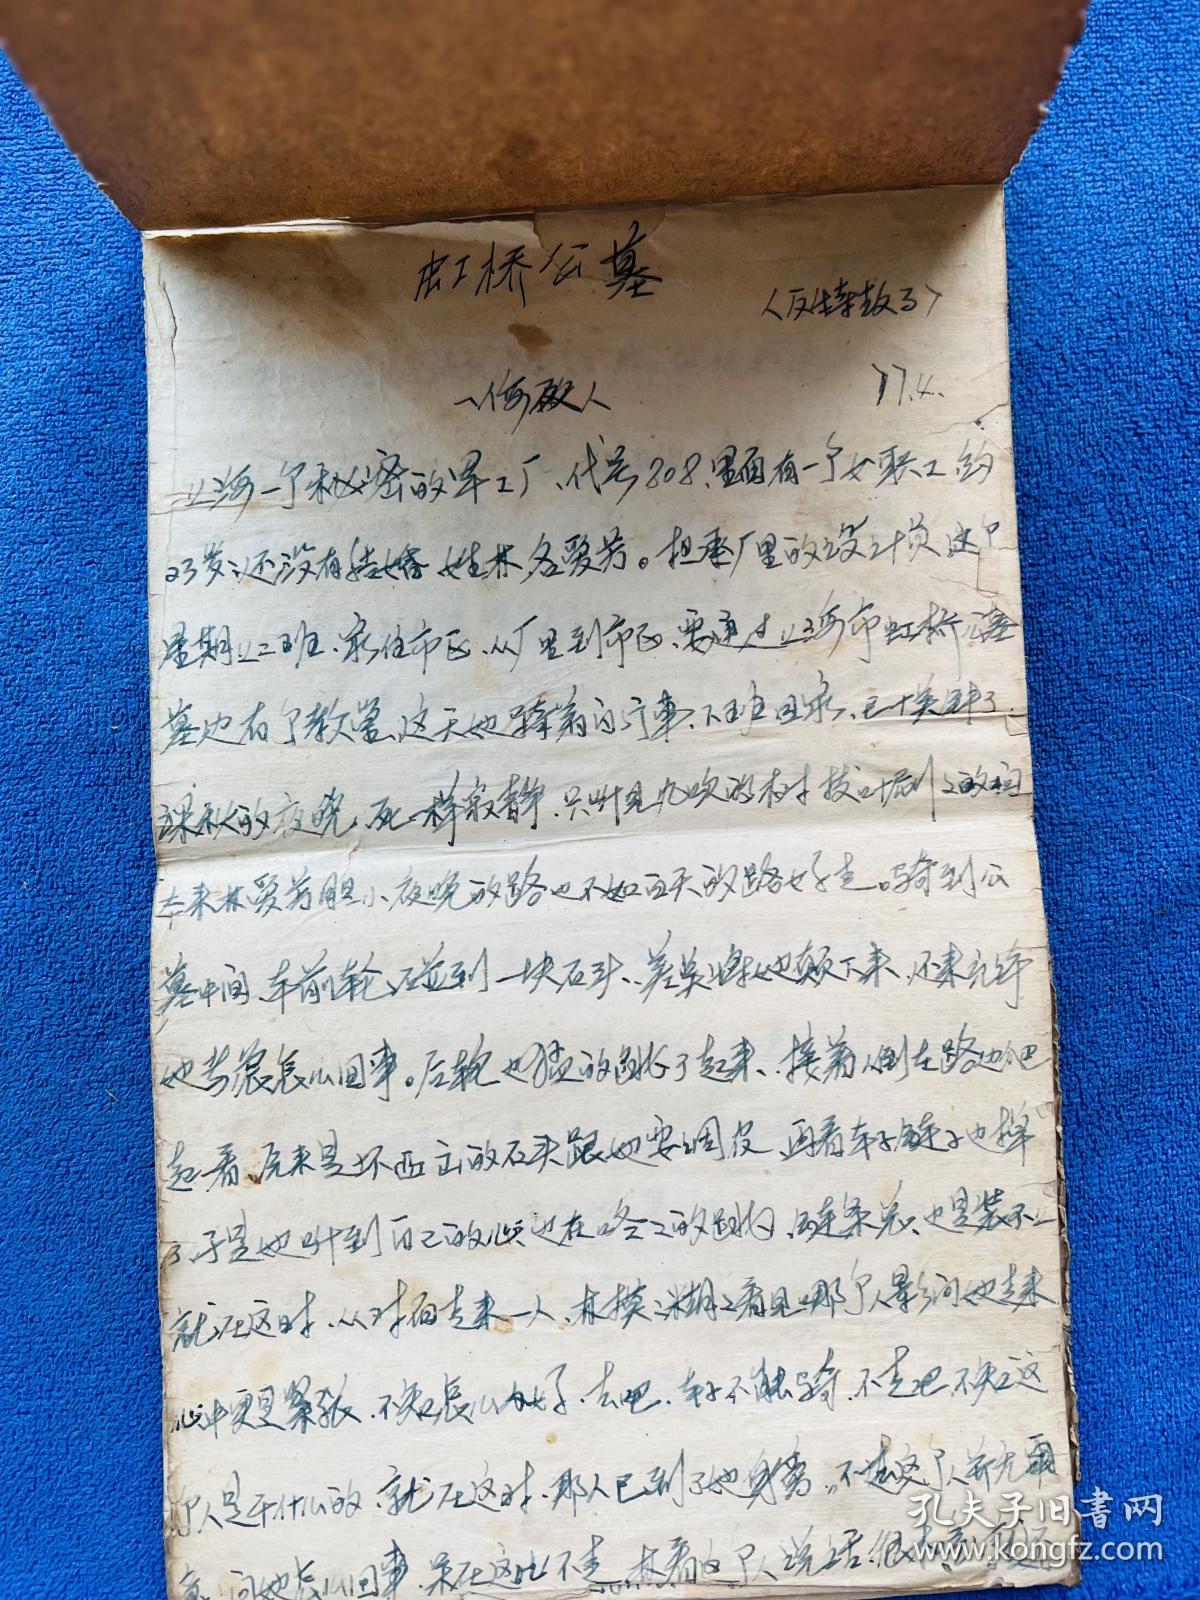 虹桥公墓
〈反特故子〉
77.4.
上海一个秘密的军工厂、代号808、里面有一个女职工约
23岁、还没有结婚 姓林、名爱芳。担任厂里的设计员 这个
星期上二班、家住市区、从厂里到市区、要通过上海市虹桥公墓
墓边有个教堂、这天她骑着自行车、下班回家、已十点半了
深秋的夜晚、死一样寂静、只听见风吹的树枝叶刷刷的响
本来林爱芳胆小、夜晚的路也不如白天的路好走。骑到公
墓中间、车前轮碰到一块石头、差点将她颠下来、还未允许
她考虑怎么回事。后轮也猛的跳了起来、接着人倒在路边爬
起一看、原来是块凸出的石头跟她耍调皮、再看车子链子也掉
了、于是她听到自己的心也在咚咚的跳、链条总也是装不上
就在这时、从对面走来一人、林模糊看见那个人影向她走来
心中更是紧张、不知怎么办好、走吧、车子不能骑、不走吧 不知这
个人是干什么的、就在这时、那人已到了她身旁。不过这个人并无恶
意、问她怎么回事、呆在这里不走、林看这个人说话很
孔夫子旧书网
www.kongfz.com